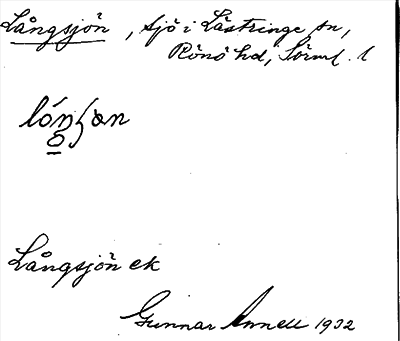 Långsjön, sjö i Lästringe sn,
Rönö hd, Sörml. l
Långsjön ek
Gunnar Annell 1932